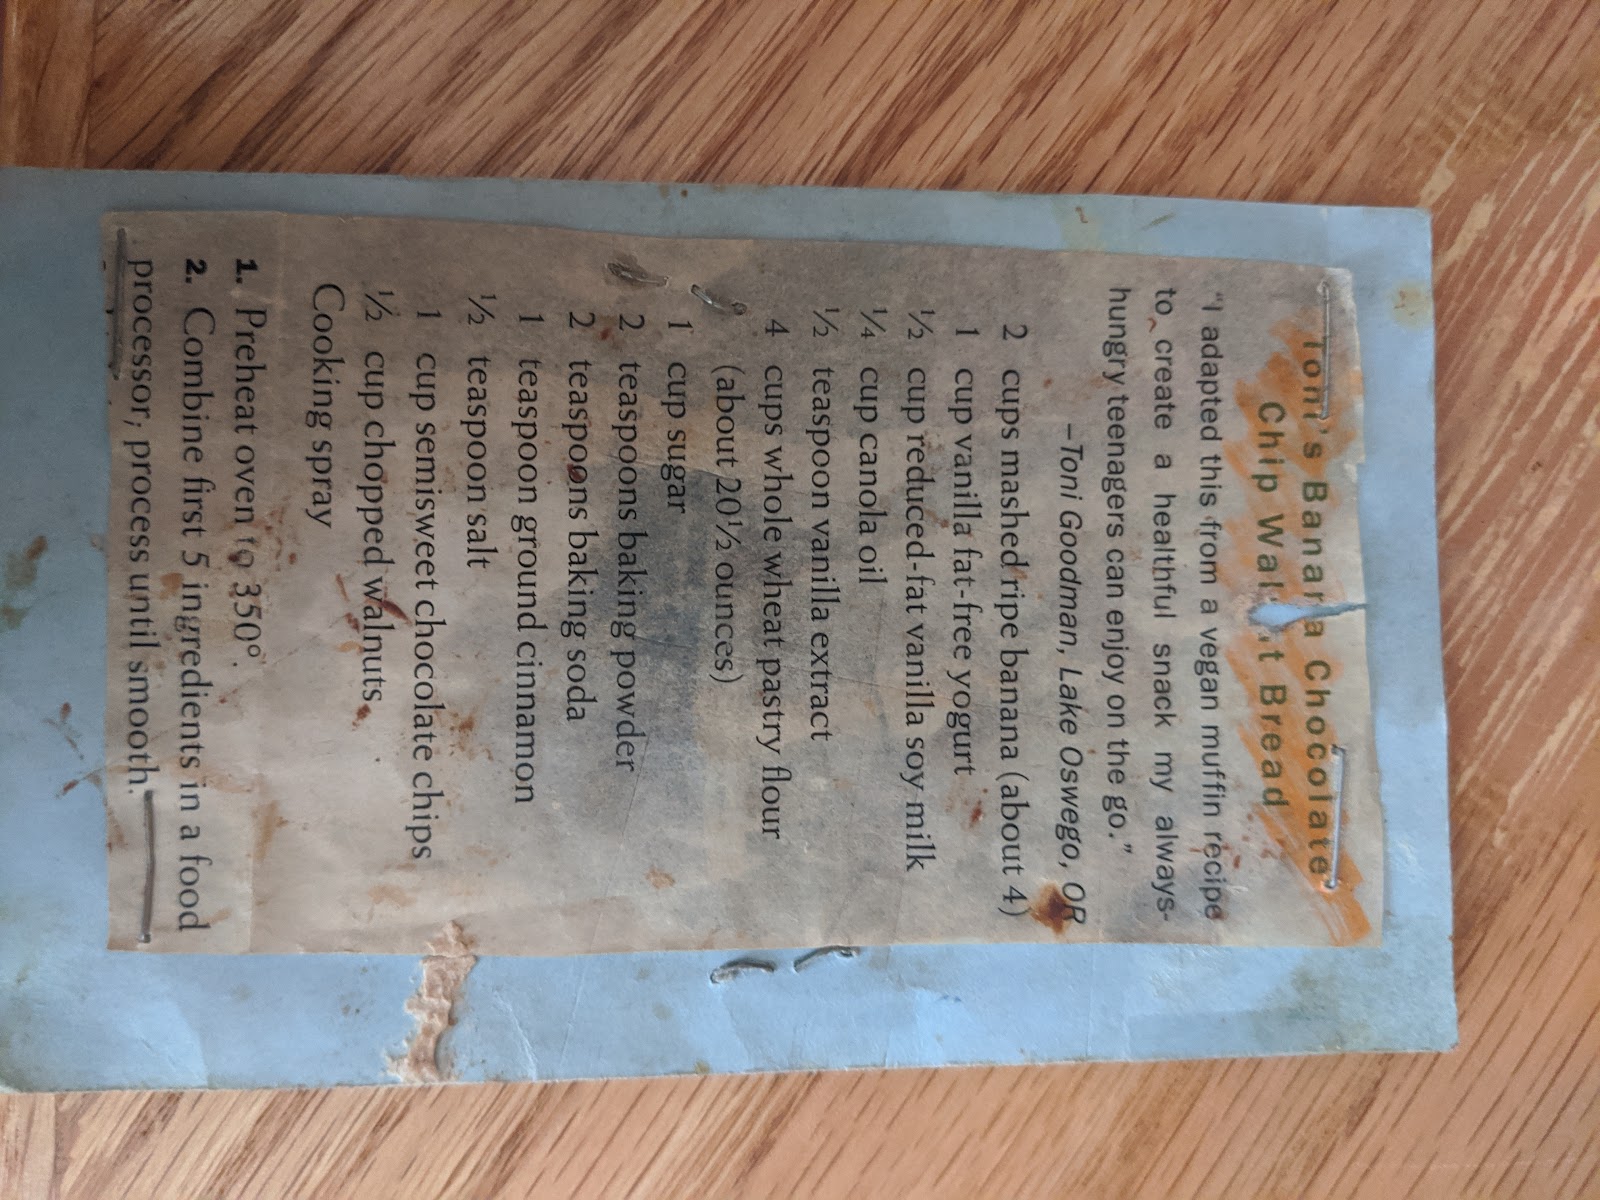 Toni's Banana Chocolate
Chip Walnut Bread
"I adapted this from a vegan muffin recipe
to create a healthful snack my always-
hungry teenagers can enjoy on the go."
–Toni Goodman, Lake Oswego, OR
2 cups mashed ripe banana (about 4)
1 cup vanilla fat-free yogurt
½ cup reduced-fat vanilla soy milk
¼ cup canola oil
½ teaspoon vanilla extract
4 cups whole wheat pastry flour
(about 20½ ounces)
1 cup sugar
2 teaspoons baking powder
2 teaspoons baking soda
1 teaspoon ground cinnamon
½ teaspoon salt
1 cup semisweet chocolate chips
½ cup chopped walnuts
Cooking spray
1. Preheat oven to 350°.
2. Combine first 5 ingredients in a food
processor; process until smooth.